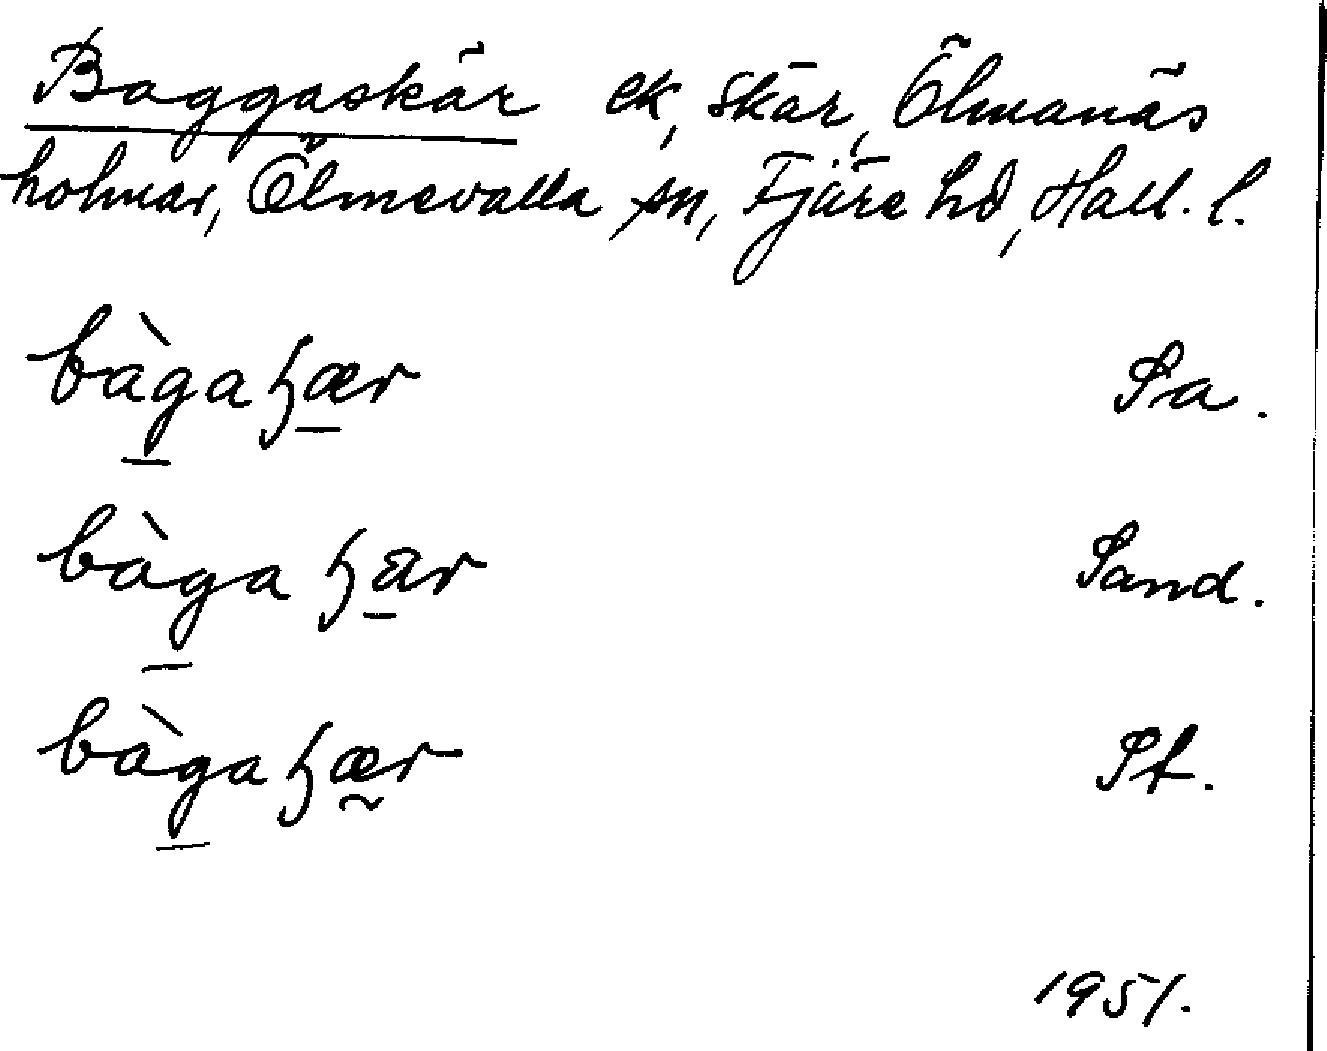 Baggaskär ek, skär, Ölmanäs
holmar, Ölmevalla sn, Fjäre hd, Hall. l.
bàgaꜧær Sa.
bàgaꜧär Sand.
bàgaꜧær St.
1951.